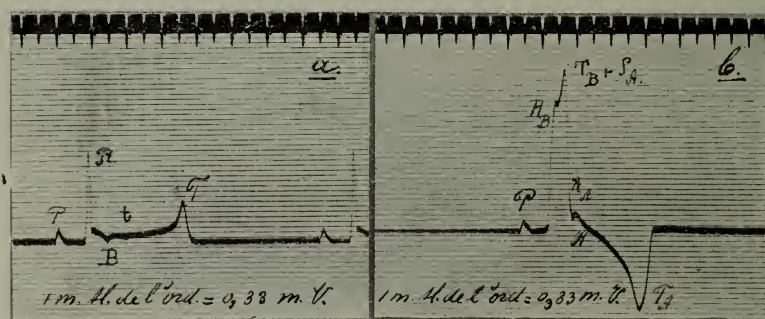 a.
R
P
t
T
B
1 m. M. de l'ord. = 0,33 m. V.
b.
T_B + S_A.
R_B
P
R_A
A
T_A
1 m. M. de l'ord = 0,33 m. V.